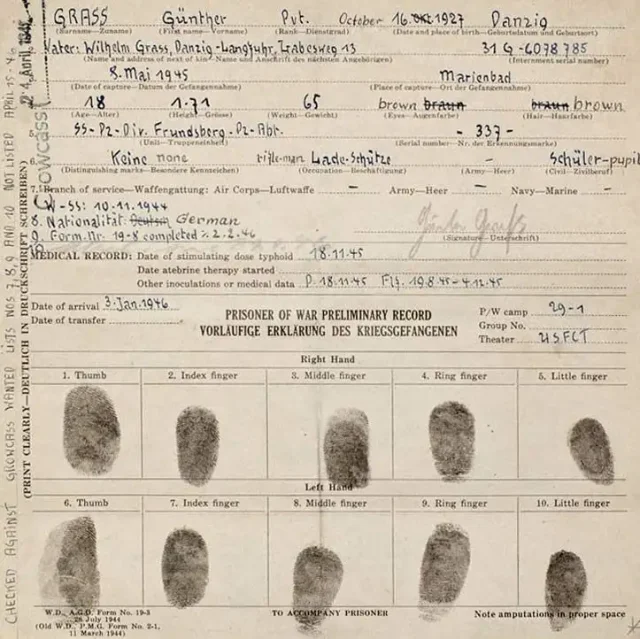 GRASS Günther Pvt. October 16. Okt 1927 Danzig
(Surname—Zuname) (First name—Vorname) (Rank—Dienstgrad) (Date and place of birth—Geburtsdatum und Geburtsort)
Vater: Wilhelm Grass, Danzig-Langfuhr, Labesweg 13 31 G-6078785
(Name and address of next of kin—Name und Anschrift des nächsten Angehörigen) (Internment serial number)
8. Mai 1945 Marienbad
(Date of capture—Datum der Gefangennahme) (Place of capture—Ort der Gefangennahme)
18 1.71 65 brown braun braun brown
(Age—Alter) (Height—Grösse) (Weight—Gewicht) (Eyes—Augenfarbe) (Hair—Haarfarbe)
SS-Pz-Div. Frundsberg-Pz-Abt. - 337 -
(Unit—Truppeneinheit) (Serial number—Nr. der Erkennungsmarke)
Keine none rifle-man Lade-Schütze — Schüler-pupil
(Distinguishing marks—Besondere Kennzeichen) (Occupation—Beschäftigung) (Army—Heer) (Civil—Zivilberuf)
7. Branch of service—Waffengattung: Air Corps—Luftwaffe — Army—Heer — Navy—Marine —
W-SS: 10.11.1944
8. Nationalität Deutsch German
9. Form.Nr. 19-8 completed 2.2.46
(Signature—Unterschrift)
MEDICAL RECORD: Date of stimulating dose typhoid 18.11.45
Date atebrine therapy started
Other inoculations or medical data P. 18.11.45 Flf. 19.8.45-4.12.45
Date of arrival 3. Jan. 1946 P/W camp 29-1
Date of transfer Group No.
PRISONER OF WAR PRELIMINARY RECORD Theater USFET
VORLÄUFIGE ERKLÄRUNG DES KRIEGSGEFANGENEN
Right Hand
1. Thumb 2. Index finger 3. Middle finger 4. Ring finger 5. Little finger
Left Hand
6. Thumb 7. Index finger 8. Middle finger 9. Ring finger 10. Little finger
W.D., A.G.O. Form No. 19-3
28 July 1944
(Old W.D., P.M.G. Form No. 2-1,
11 March 1944)
TO ACCOMPANY PRISONER Note amputations in proper space
(PRINT CLEARLY—DEUTLICH IN DRUCKSCHRIFT SCHREIBEN)
CHECKED AGAINST GROWCASS WANTED LISTS NOS 7, 8, 9 AND 10 NOT LISTED APRIL 15-46